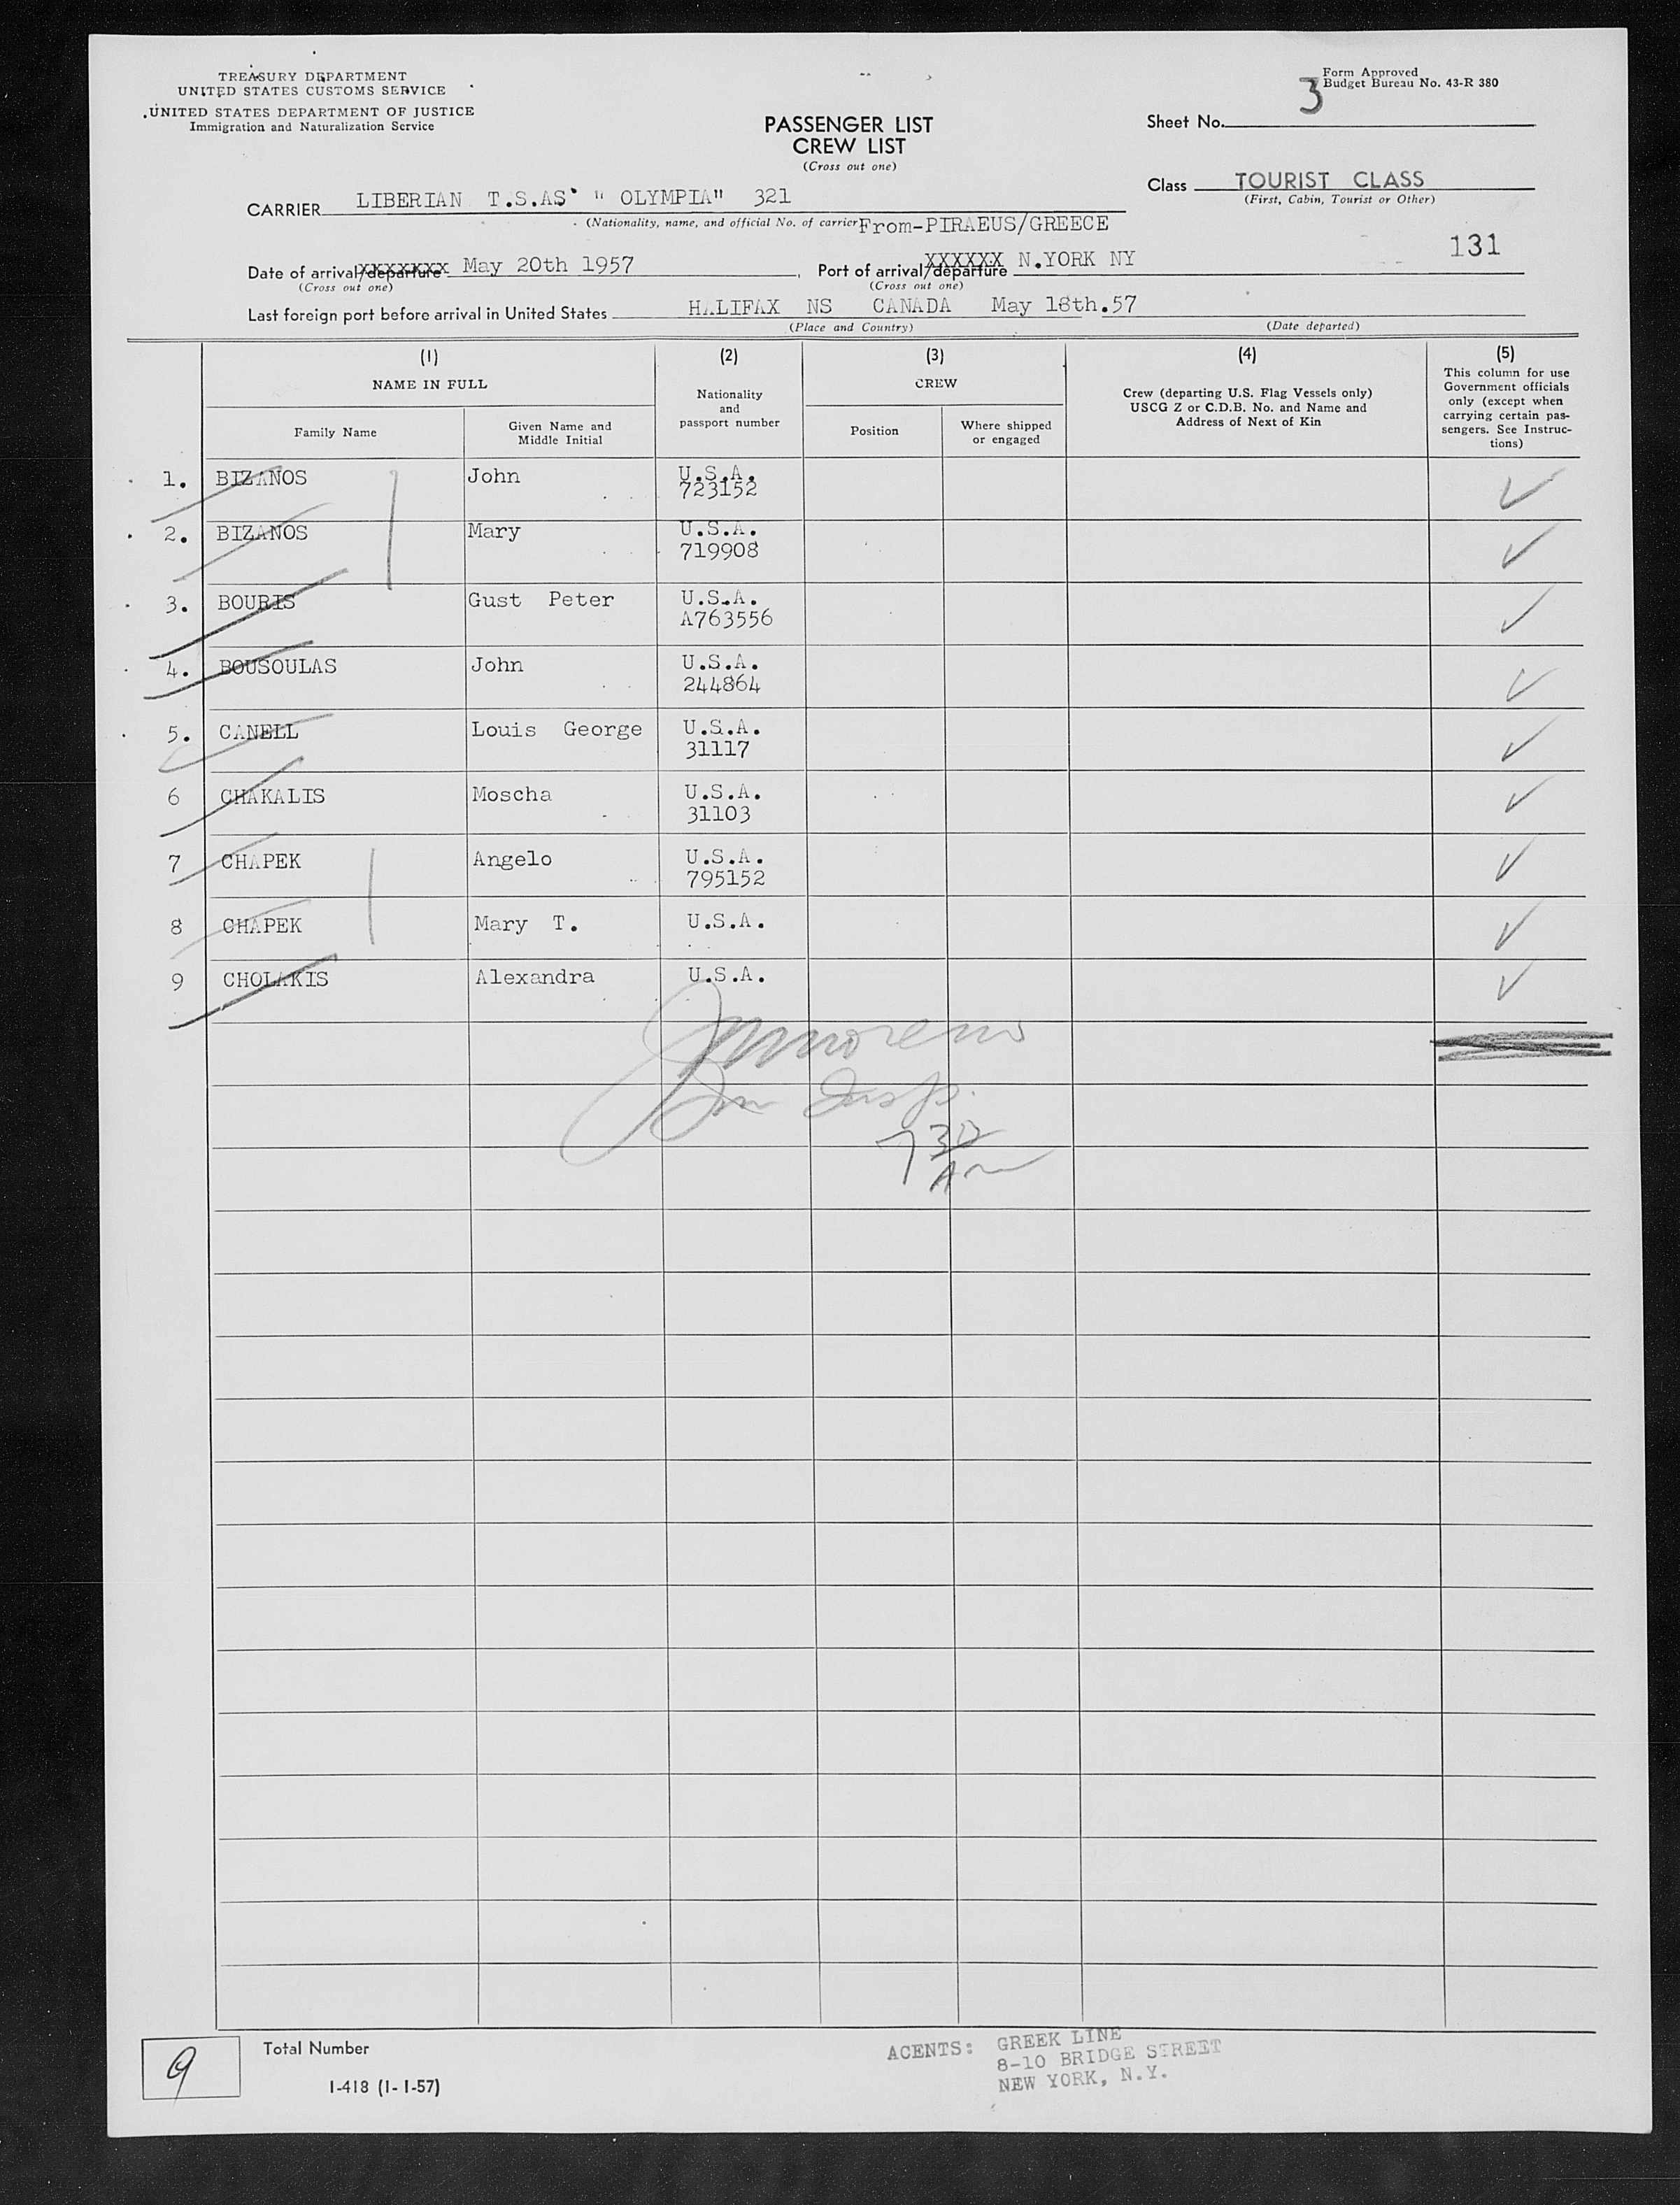 TREASURY DEPARTMENT
UNITED STATES CUSTOMS SERVICE
UNITED STATES DEPARTMENT OF JUSTICE
Immigration and Naturalization Service
Form Approved
Budget Bureau No. 43-R 380
PASSENGER LIST
CREW LIST
(Cross out one)
Sheet No. 3
Class TOURIST CLASS
(First, Cabin, Tourist or Other)
CARRIER LIBERIAN T.S.AS' " OLYMPIA" 321
(Nationality, name, and official No. of carrier From-PIRAEUS/GREECE
131
Date of arrival/departure XXXXXXX May 20th 1957, Port of arrival/departure XXXXXX N.YORK NY
(Cross out one) (Cross out one)
Last foreign port before arrival in United States HALIFAX NS CANADA May 18th.57
(Place and Country) (Date departed)
(1) (2) (3) (4) (5)
NAME IN FULL
Family Name
Given Name and
Middle Initial
Nationality
and
passport number
CREW
Position
Where shipped
or engaged
Crew (departing U.S. Flag Vessels only)
USCG Z or C.D.B. No. and Name and
Address of Next of Kin
This column for use
Government officials
only (except when
carrying certain pas-
sengers. See Instruc-
tions)
1. BIZANOS John U.S.A.
723152
2. BIZANOS Mary U.S.A.
719908
3. BOURIS Gust Peter U.S.A.
A763556
4. BOUSOULAS John U.S.A.
244864
5. CANELL Louis George U.S.A.
31117
6 CHAKALIS Moscha U.S.A.
31103
7 CHAPEK Angelo U.S.A.
795152
8 CHAPEK Mary T. U.S.A.
9 CHOLAKIS Alexandra U.S.A.
Insp.
7 30
Am
9
Total Number
I-418 (1-1-57)
AGENTS: GREEK LINE
8-10 BRIDGE STREET
NEW YORK, N.Y.